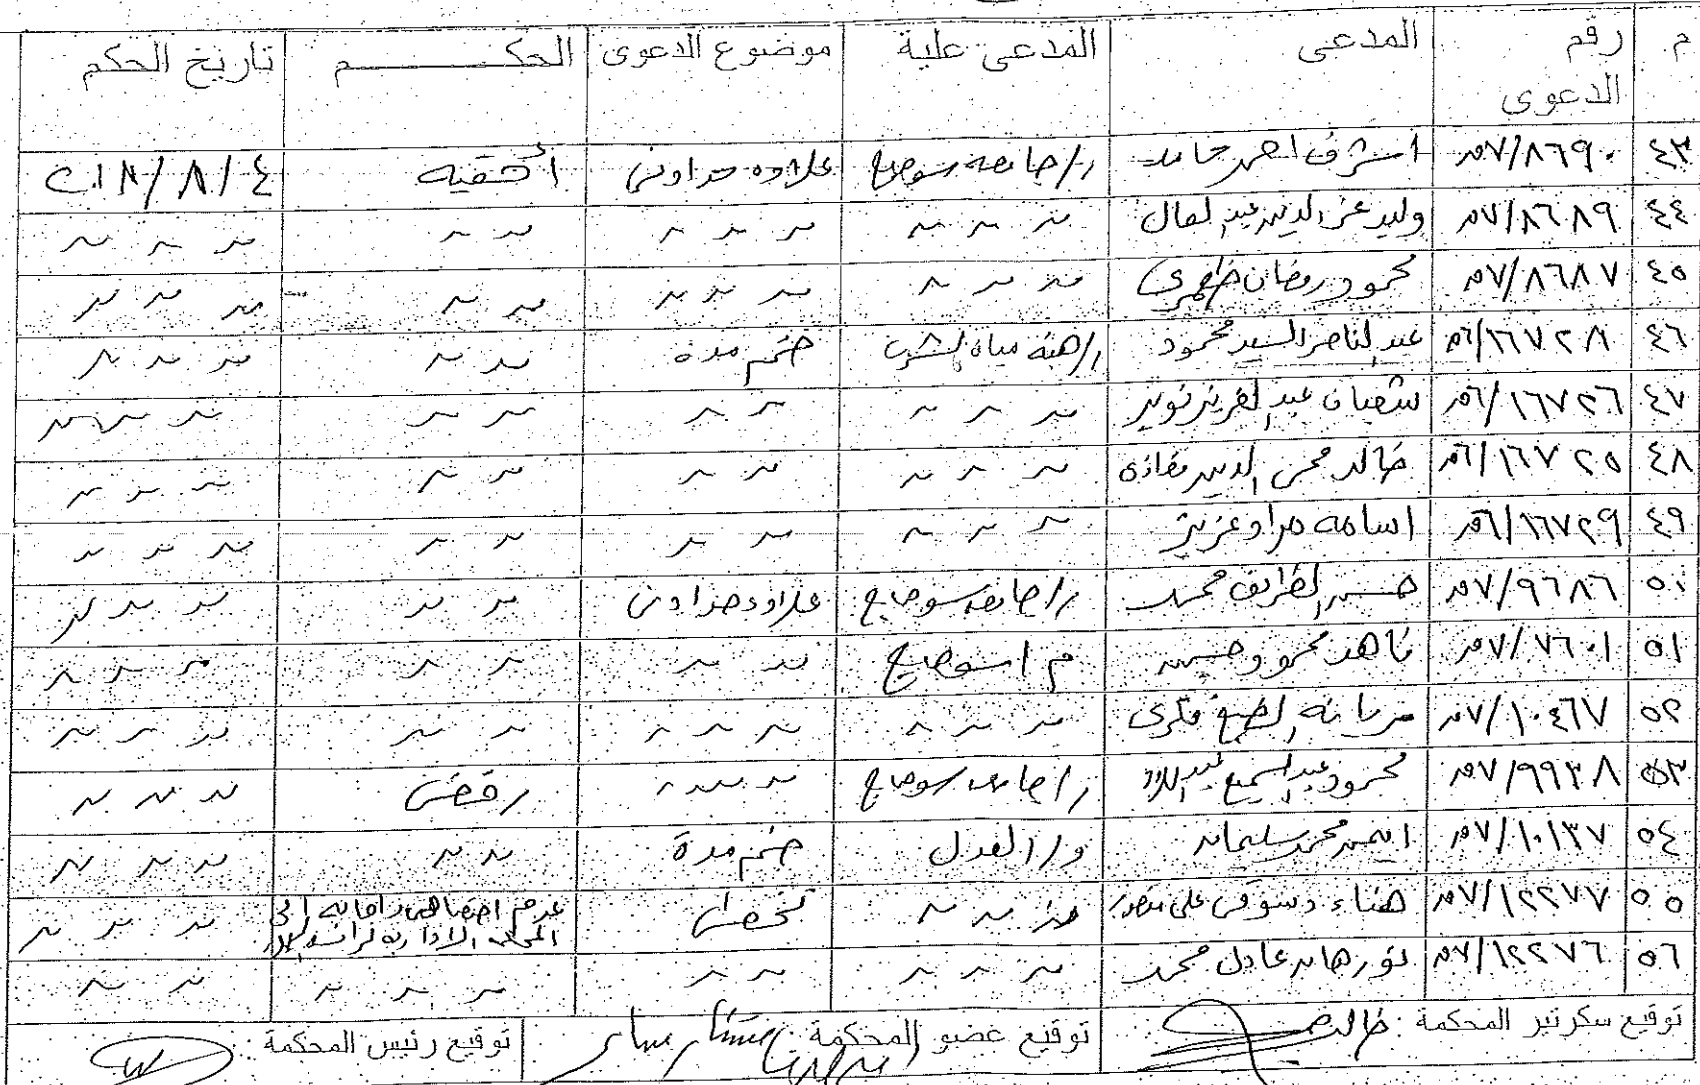 م رقم الدعوى المدعى المدعى علية موضوع الدعوى الحكــــــم تاريخ الحكم
٤٣ ٨٦٩٠/٥٧ اشرف احمد حامد ر/جامعه سوهاج علاوه حد ادنى أحقيه ٢٠١٨/٨/٤
٤٤ ٨٦٨٩/٥٧ وليد عز الدين عبد العال ~ ~ ~ ~ ~ ~ ~ ~ ~ ~ ~
٤٥ ٨٦٨٧/٥٧ محمود رمضان ~ ~ ~ ~ ~ ~ ~ ~ ~ ~ ~
٤٦ ١٦٧٢٨/٥٦ عبد الناصر السيد محمود ر/هيئه مياه الشرب ضم مده ~ ~ ~ ~ ~
٤٧ ١٦٧٢٦/٥٦ شعبان عبد العزيز ~ ~ ~ ~ ~ ~ ~ ~ ~ ~
٤٨ ١٦٧٢٥/٥٦ خالد محى الدين ~ ~ ~ ~ ~ ~ ~ ~ ~ ~
٤٩ ١٦٧٢٩/٥٦ اسامه مراد عزيز ~ ~ ~ ~ ~ ~ ~ ~ ~ ~
٥٠ ٩٦٨٦/٥٧ محمد ر/جامعه سوهاج علاوه حد ادنى ~ ~ ~ ~ ~
٥١ ٧٦٠١/٥٧ ناهد محمود حسين م/سوهاج ~ ~ ~ ~ ~ ~ ~
٥٢ ١٠٤٦٧/٥٧ فكرى ~ ~ ~ ~ ~ ~ ~ ~ ~ ~ ~
٥٣ ٩٩٣٨/٥٧ محمود عبد السميع عبد ر/جامعه سوهاج ~ ~ ~ رفض ~ ~ ~
٥٤ ١٠١٣٧/٥٧ ايمن محمد سليمان و/العدل ضم مدة ~ ~ ~ ~ ~
٥٥ ١٢٢٧٧/٥٧ هناء دسوقى على ~ ~ ~ تخطى عدم اختصاص واحاله الى ~ ~ ~
٥٦ ١٢٢٧٦/٥٧ نورهان عادل محمد ~ ~ ~ ~ ~ ~ ~ ~ ~ ~
توقيع سكرتير المحكمة خالد توقيع عضو المحكمة توقيع رئيس المحكمة